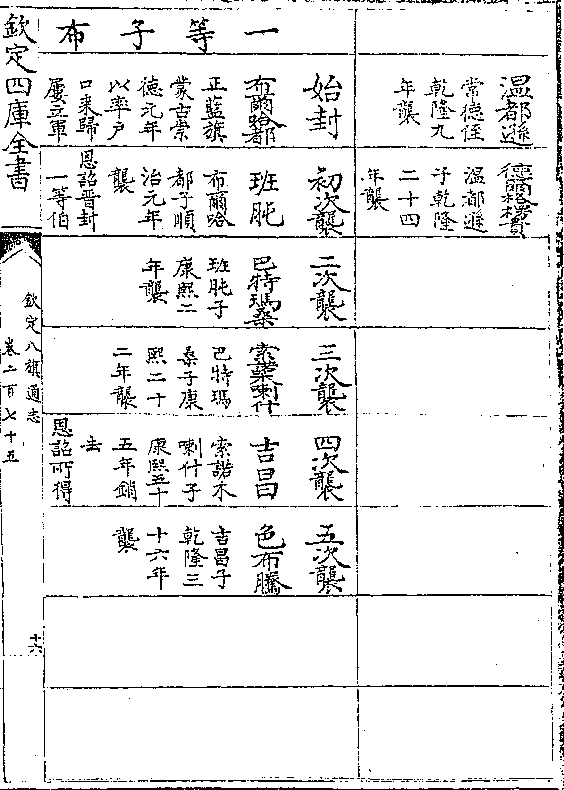 溫都遜
常德侄
乾隆九
年襲
溫都遜
子乾隆
二十四
年襲
一等子布
始封
布爾哈都
正藍旗
蒙古崇
德元年
以率戶
口來歸
屢立軍
初次襲
班肫
布爾哈
都子順
治元年
襲
恩詔晉封
一等伯
二次襲
巴特瑪桑
班肫子
康熙二
年襲
三次襲
索諾木喇什
巴特瑪
桑子康
熙二十
二年襲
四次襲
吉昌
索諾木
喇什子
康熙五十
五年銷
去
恩詔所得
五次襲
色布騰
吉昌子
乾隆三
十六年
襲
欽定四庫全書
欽定八旗通志
卷二百七十五
十六